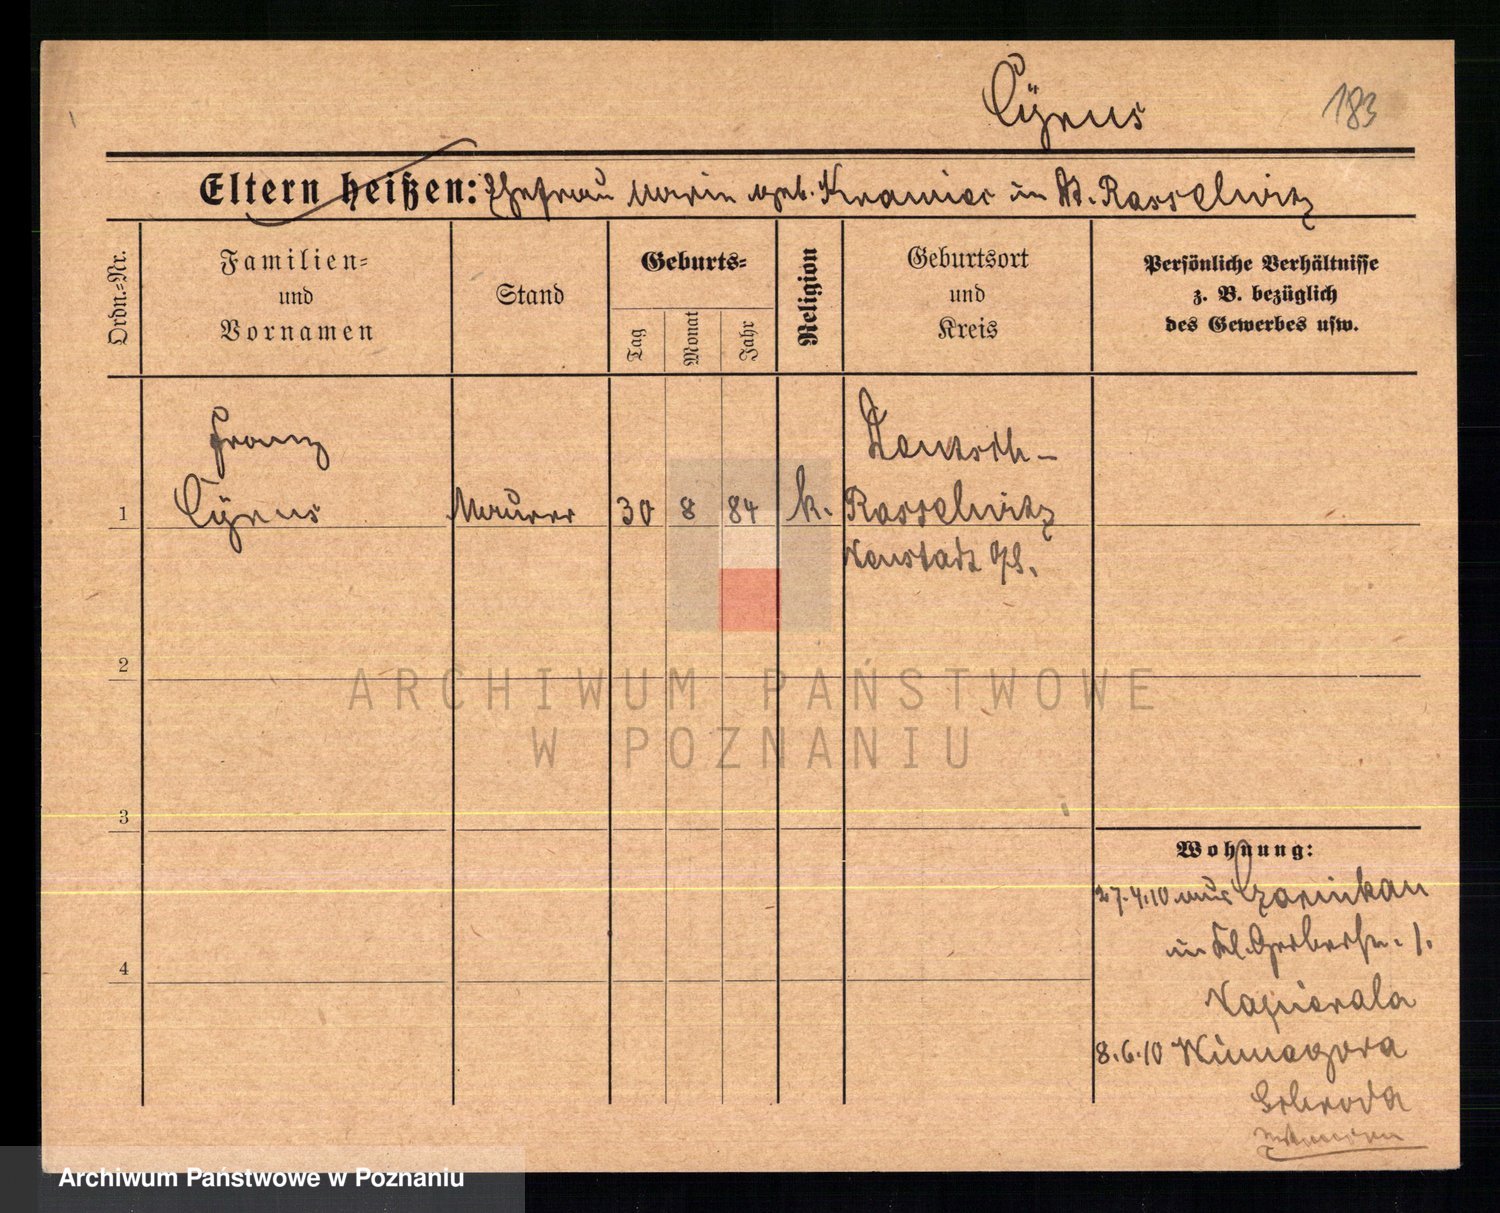 Cÿrus 183
Eltern heißen: Ehefrau Marie geb. Kramiec in Dt. Rasselwitz
Ordn.-Nr.
Familien-
und
Vornamen
Stand
Geburts-
Tag
Monat
Jahr
Religion
Geburtsort
und
Kreis
Persönliche Verhältnisse
z. B. bezüglich
des Gewerbes usw.
Franz
1 Cÿrus Maurer 30 8 84 k. Deutsch-
Rasselwitz
Neustadt O/S.
2
ARCHIWUM PAŃSTWOWE
W POZNANIU
3
4
Wohnung:
27.4.10 aus Czarnikau
in Kl. Gerberstr. 1.
Napierala
8.6.10 Winagora
Schroda
Archiwum Państwowe w Poznaniu